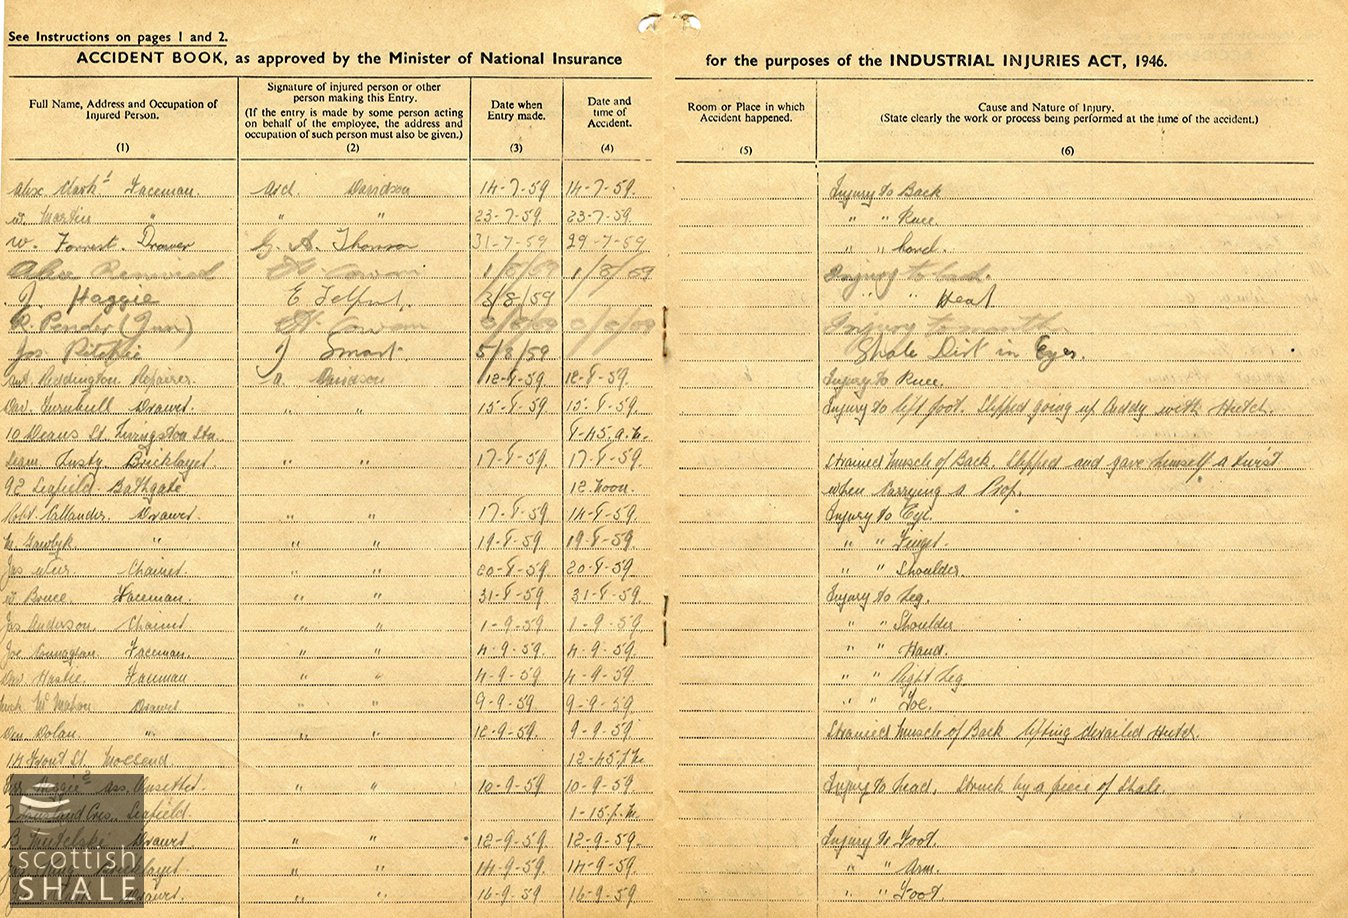 See Instructions on pages 1 and 2.
ACCIDENT BOOK, as approved by the Minister of National Insurance for the purposes of the INDUSTRIAL INJURIES ACT, 1946.
Full Name, Address and Occupation of Injured Person. (1)
Signature of injured person or other person making this Entry. (If the entry is made by some person acting on behalf of the employee, the address and occupation of such person must also be given.) (2)
Date when Entry made. (3)
Date and time of Accident. (4)
Room or Place in which Accident happened. (5)
Cause and Nature of Injury. (State clearly the work or process being performed at the time of the accident.) (6)
Alex Clark 1 Faceman. Arch. Davidson 14-7-59 14-7-59. Injury to Back
W. Martin " " " 23-7-59. 23-7-59. " " Knee.
W. Forrest. Drawer G. A. Thomson 31-7-59 29-7-59 " " hand.
Alex Renwick Cowan 1/8/59 1/8/59 Injury to back.
J. Haggie E Telfort. 3/8/59 " " Head
R. Pender (Jun) Cowan Injury to
Jas Ritchie J Smart. 5/8/59 Shale Dirt in Eyes.
Reddington Repairer. A. Davidson 12-8-59 12-8-59. Injury to Knee.
Dav. Turnbull Drawer. " " 15-8-59. 15-8-59. Injury to left foot. Slipped going up Cuddy with Hutch.
10 Deans St. Livingston Stn. 8-45.a.m.
Lusty. Bricklayer. " " 17-8-59. 17-8-59. Strained muscle of Back. Slipped and gave himself a twist
92 Seafield. Bathgate 12 noon. when carrying a Prop.
Robt. Callander. Drawer. " " 17-8-59. 14-8-59. Injury to Eye.
" " " 19-8-59. 19-8-59. " " Finger.
Jas Weir. Chainer. " " 20-8-59. 20-8-59. " " Shoulder.
W. Bruce. Faceman. " " 31-8-59. 31-8-59. Injury to Leg.
Jas Anderson. Chainer " " 1-9-59. 1-9-59. " " Shoulder
Joe Connaghan. Faceman. " " 4-9-59. 4-9-59. " " Hand.
Dav Hastie. Faceman " " 4-9-59. 4-9-59. " " Right Leg.
McMahon Drawer " " 9-9-59. 9-9-59. " " Toe.
Den Dolan. " " " 12-9-59. 9-9-59. Strained Muscle of Back lifting derailed Hutch.
14 Front St. 12-45 p.m.
Haggie 2 Ass. Onsetter. " " 10-9-59. 10-9-59. Injury to head. Struck by a piece of Shale.
Cres. Seafield. 1-15.p.m.
B. Drawer " " 12-9-59. 12-9-59. Injury to Foot.
Bricklayer. " " 14-9-59. 14-9-59. " " Arm.
Drawer. " " 16-9-59 16-9-59. " " Foot.
scottish
SHALE